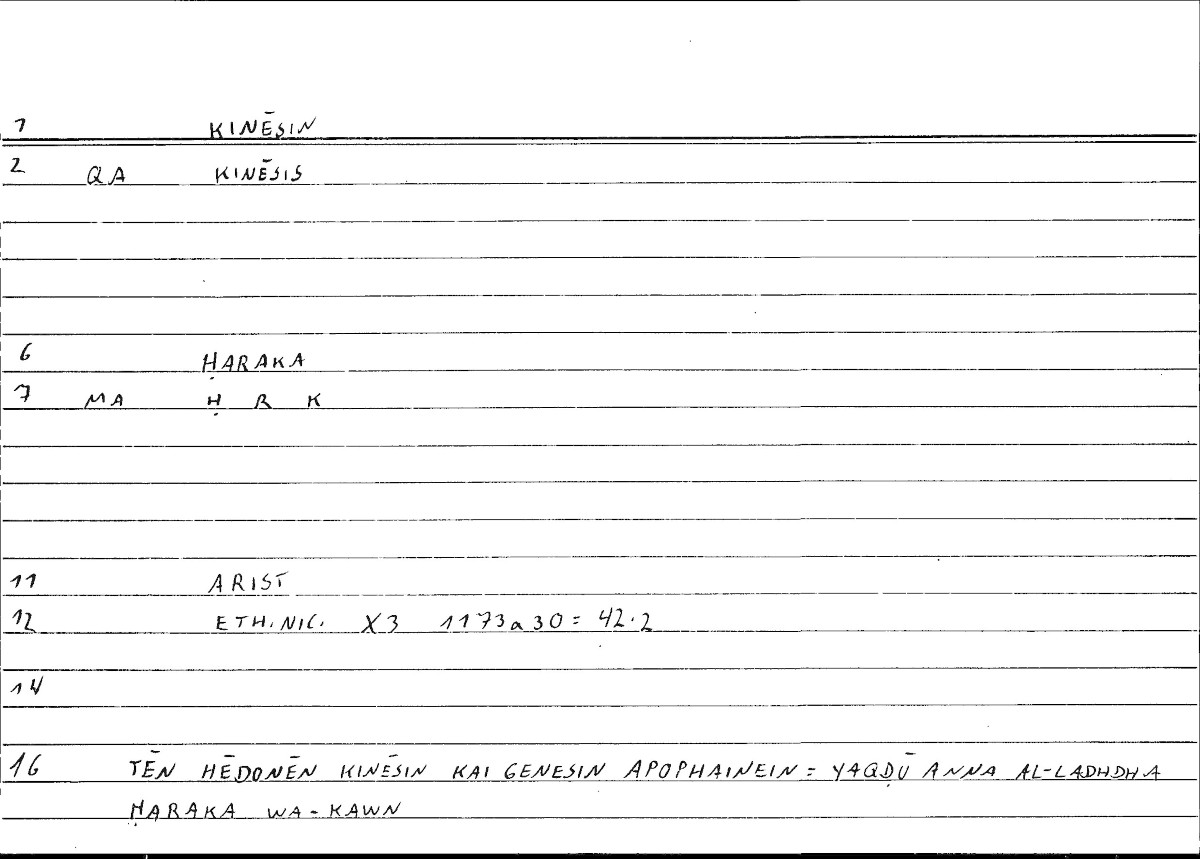 1 KINĒSIN
2 QA KINĒSIS
6 ḤARAKA
7 MA Ḥ R K
11 ARIST
12 ETH. NIC. X3 1173a30 = 42.2
14
16 TĒN HĒDONĒN KINĒSIN KAI GENESIN APOPHAINEIN = YAQḌŪ ANNA AL-LADHDHA
ḤARAKA WA-KAWN